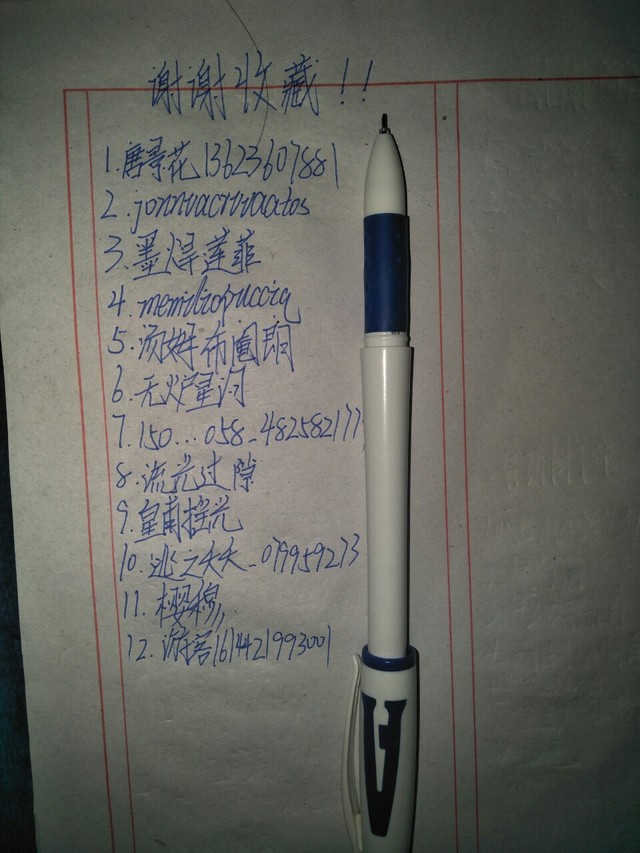 谢谢收藏！！
1.唐寻花13623607881
2.jonnvacrvvaatos
3.墨焊莲菲
4.
5.汤好布圈朗
6.无炉星河
7.150...058_482582177
8.流光过隙
9.皇甫揽光
10.逃之夭夭_079959273
11.樱穆,
12.游客1614421993001